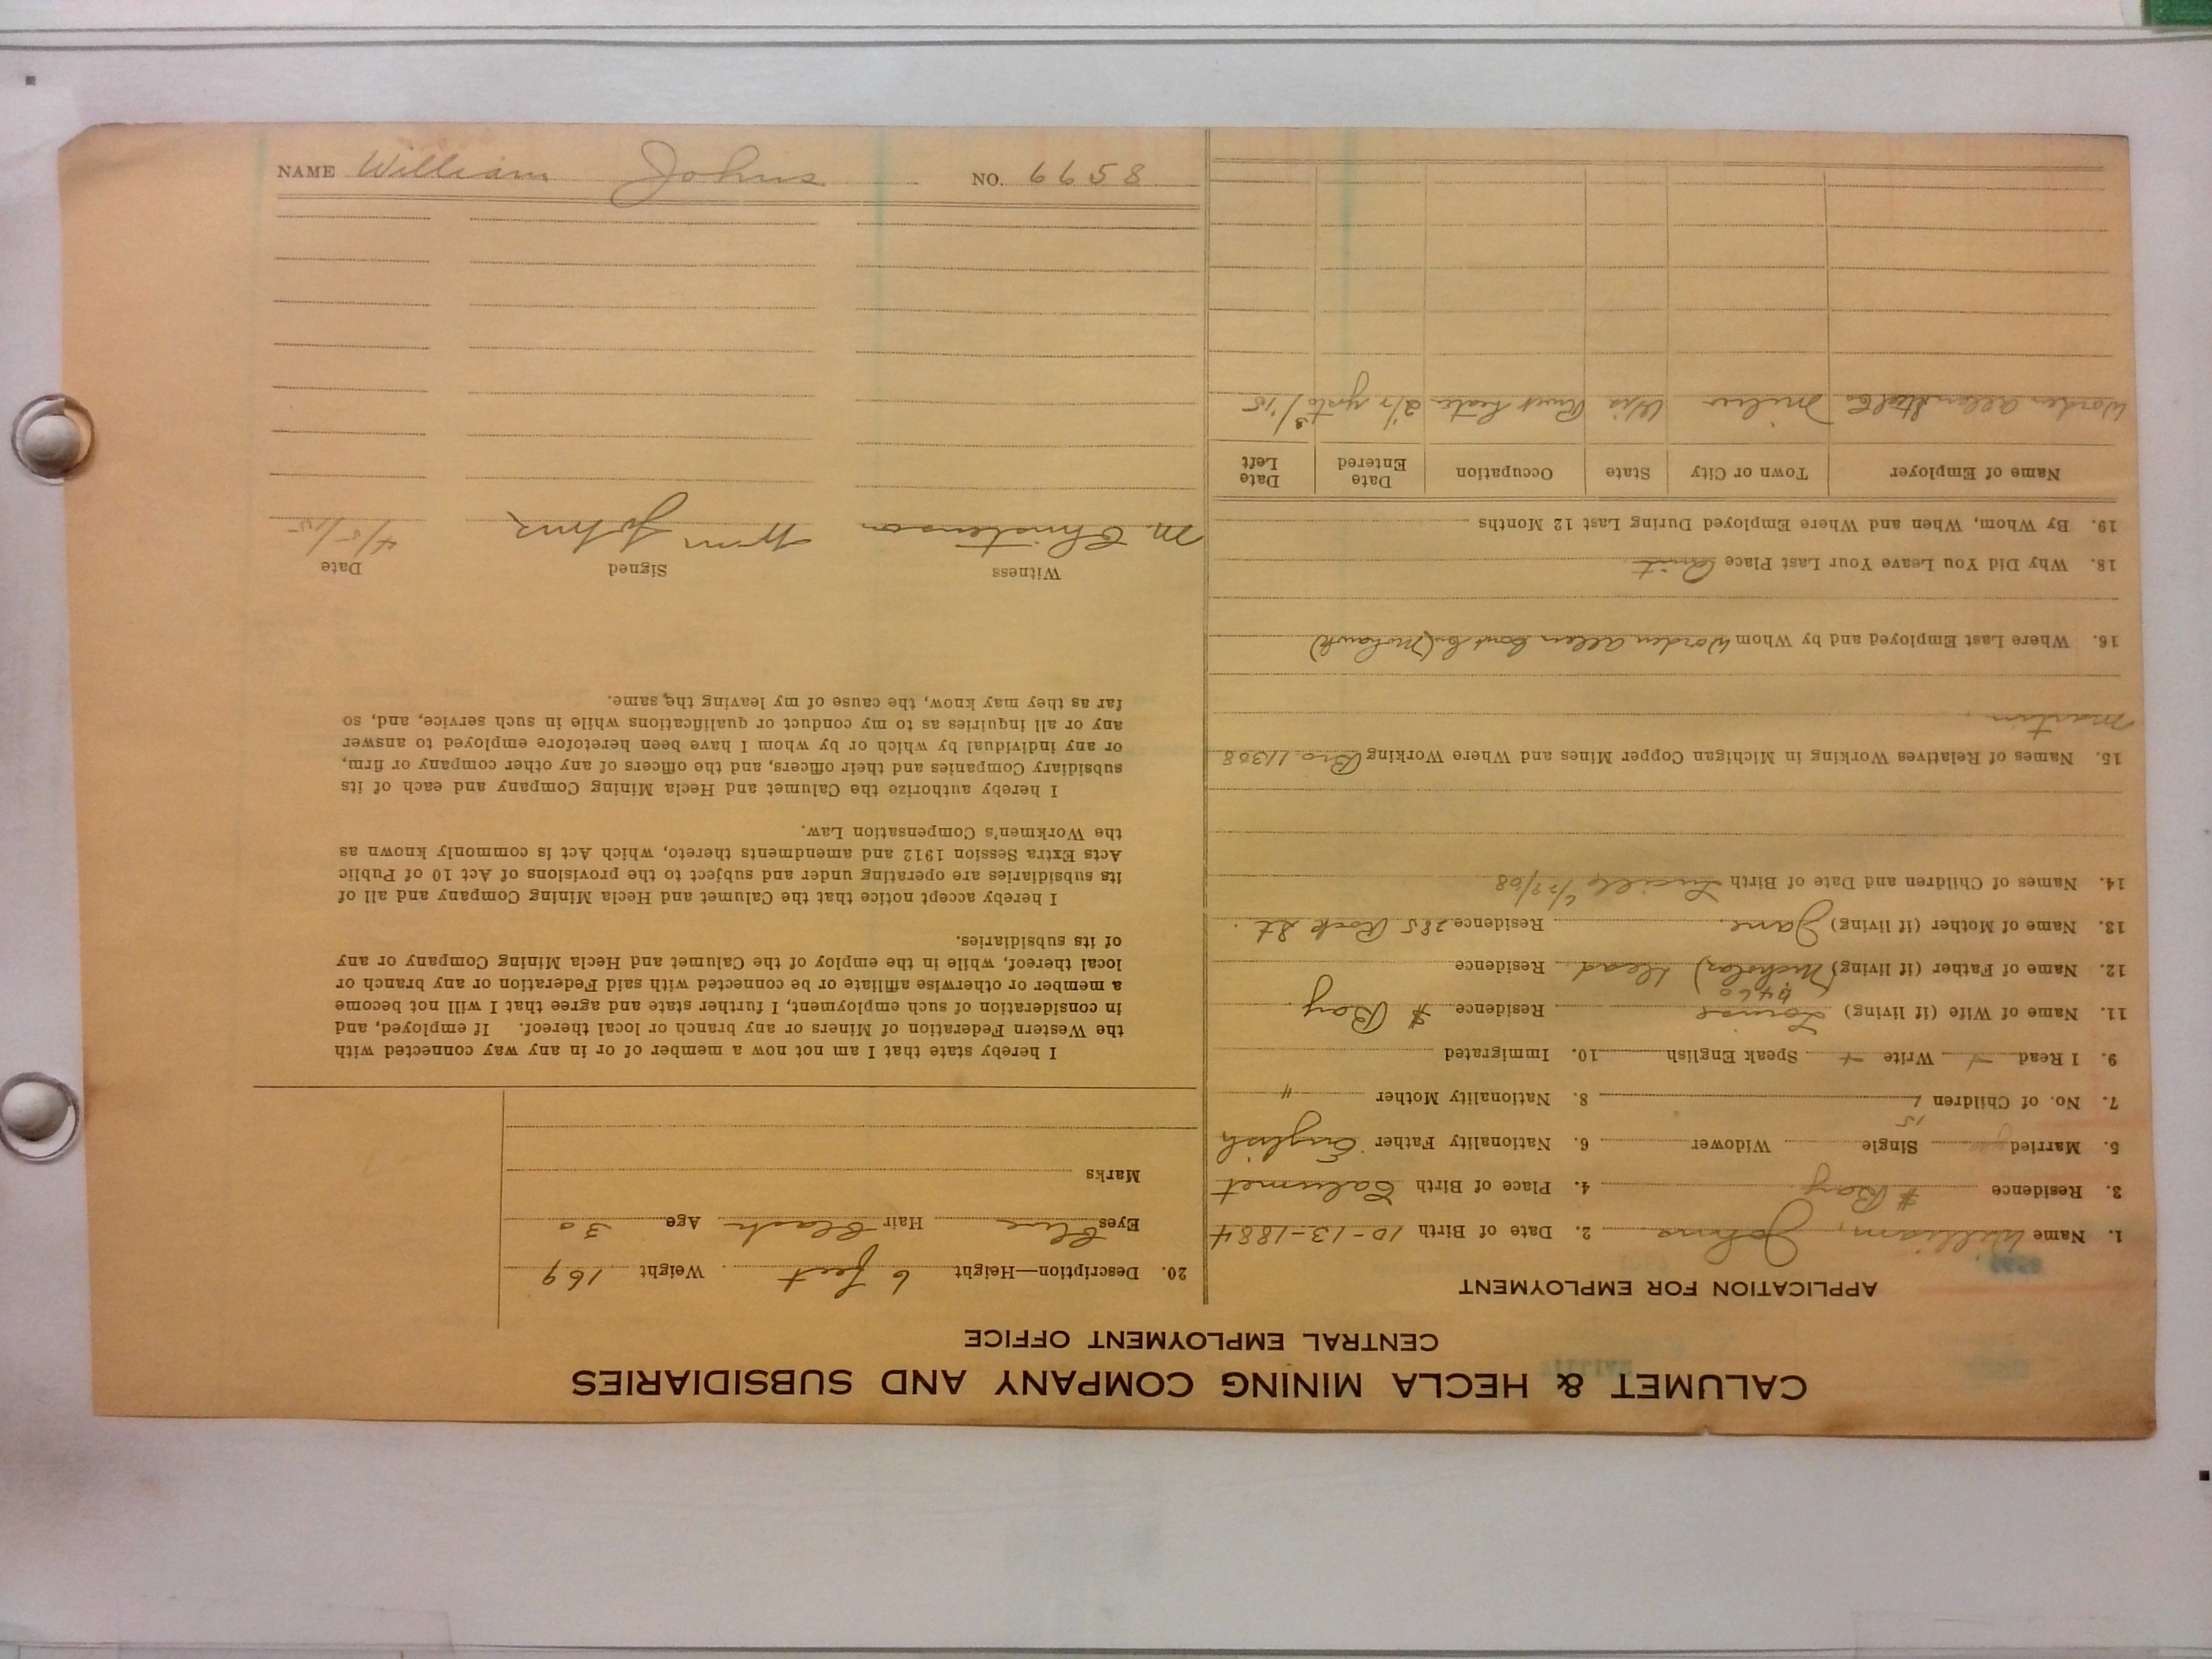 CALUMET & HECLA MINING COMPANY AND SUBSIDIARIES
CENTRAL EMPLOYMENT OFFICE
APPLICATION FOR EMPLOYMENT
1. Name William Johns 2. Date of Birth 10-13-1884
3. Residence # Bay 4. Place of Birth Calumet
5. Married Single Widower 6. Nationality Father English
7. No. of Children 1 8. Nationality Mother "
9. I Read + Write + Speak English 10. Immigrated
11. Name of Wife (if living) Louise Residence # Bay
12. Name of Father (if living) (Nicholas) dead Residence
13. Name of Mother (if living) Jane Residence 285 Rock St.
14. Names of Children and Date of Birth Lucille
15. Names of Relatives Working in Michigan Copper Mines and Where Working Bro. 11308
Martin
16. Where Last Employed and by Whom Worden Allen (Mohawk)
18. Why Did You Leave Your Last Place Quit
19. By Whom, When and Where Employed During Last 12 Months
Name of Employer Town or City State Occupation Date Entered Date Left
Worden Allen Steel Co Milw Wis
20. Description—Height 6 feet Weight 169
Eyes Blue Hair Black Age 30
Marks
I hereby state that I am not now a member of or in any way connected with
the Western Federation of Miners or any branch or local thereof. If employed, and
in consideration of such employment, I further state and agree that I will not become
a member or otherwise affiliate or be connected with said Federation or any branch or
local thereof, while in the employ of the Calumet and Hecla Mining Company or any
of its subsidiaries.
I hereby accept notice that the Calumet and Hecla Mining Company and all of
its subsidiaries are operating under and subject to the provisions of Act 10 of Public
Acts Extra Session 1912 and amendments thereto, which Act is commonly known as
the Workmen's Compensation Law.
I hereby authorize the Calumet and Hecla Mining Company and each of its
subsidiary Companies and their officers, and the officers of any other company or firm,
or any individual by which or by whom I have been heretofore employed to answer
any or all inquiries as to my conduct or qualifications while in such service, and, so
far as they may know, the cause of my leaving the same.
Witness Signed Date
M. Christenson Wm Johns 4/5/15
NAME William Johns NO. 6658